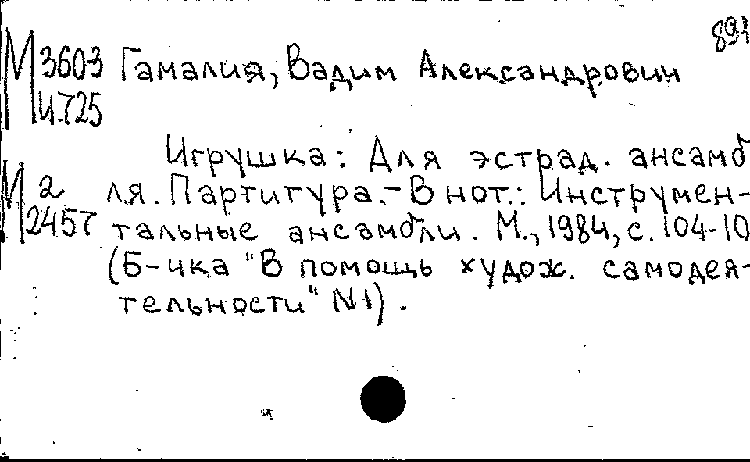 891
М 3603 Гамалия, Вадим Александрович
И.725
Игрушка: Для эстрад. ансамб
М 2 ля. Партитура.- В нот.: Инструмен-
2457 тальные ансамбли. М., 1984, с. 104-10
(Б-чка "В помощь худож. самодея-
тельности" №1).